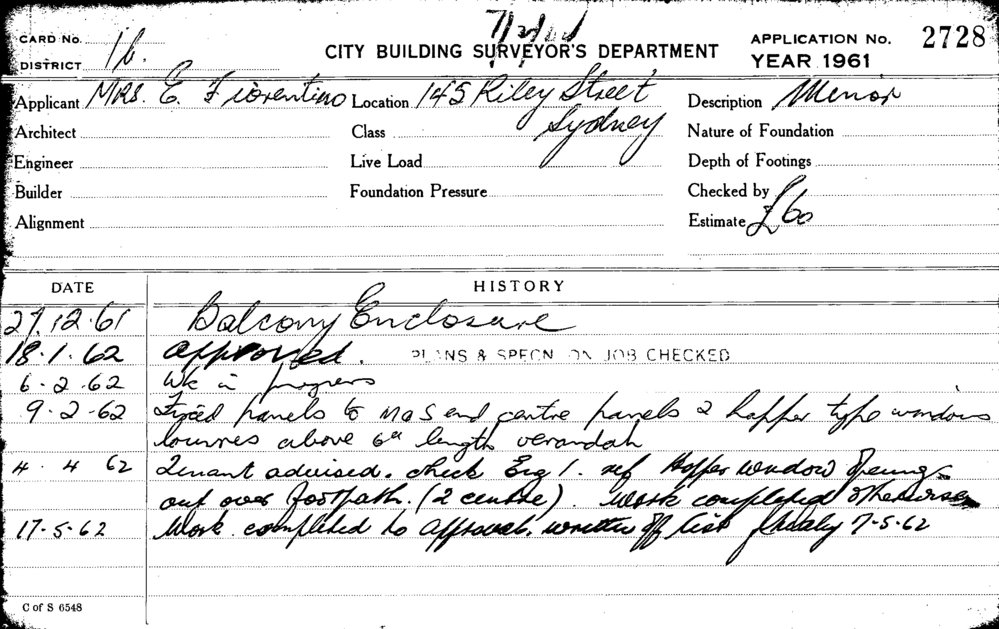 7/2/61
CARD No.
DISTRICT 16.
CITY BUILDING SURVEYOR'S DEPARTMENT
APPLICATION No. 2728
YEAR 1961
Applicant Mrs. E. Fiorentino
Location 145 Riley Street
Sydney
Description Minor
Architect
Class
Nature of Foundation
Engineer
Live Load
Depth of Footings
Builder
Foundation Pressure
Checked by
Alignment
Estimate £60
DATE
HISTORY
27.12.61 Balcony Enclosure
18.1.62 Approved. PLANS & SPECN ON JOB CHECKED
6.2.62 Wk in progress
9.2.62 Fixed panels to N & S end centre panels 2 hopper type windows
louvres above length verandah
4.4 62 Tenant advised. check Eng ref Hopper window opening
out over footpath. (2 centre). Work completed otherwise
17.5.62 Work completed to approval, written off list 7-5-62
C of S 6548